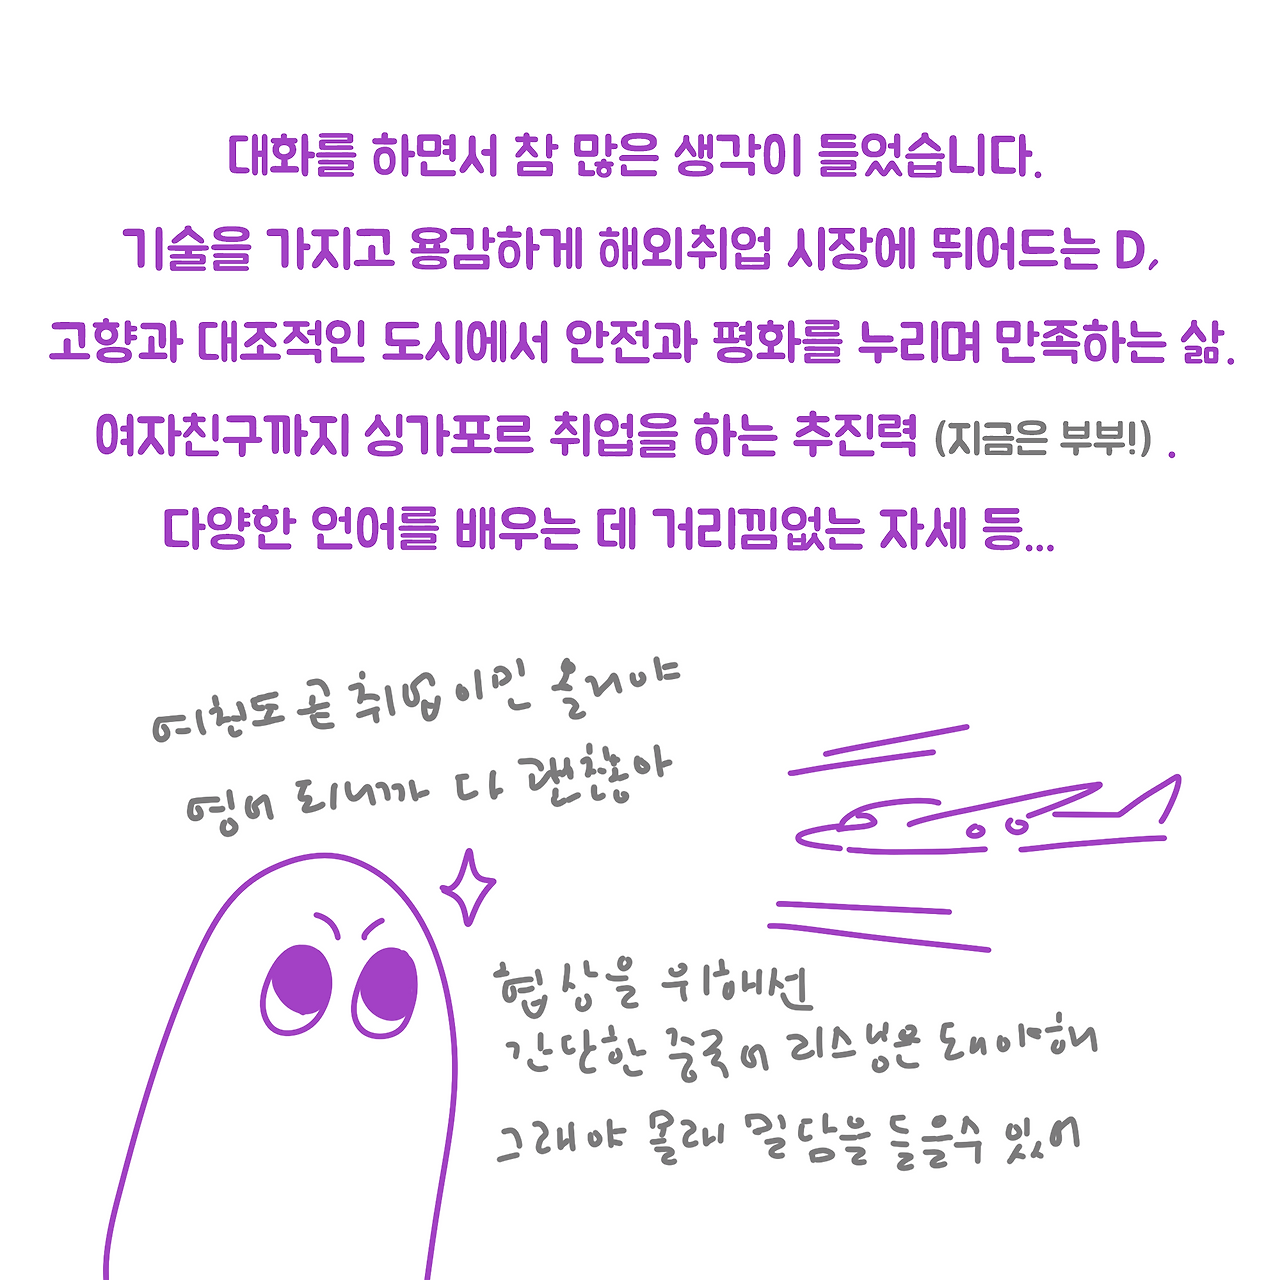 대화를 하면서 참 많은 생각이 들었습니다.
기술을 가지고 용감하게 해외취업 시장에 뛰어드는 D,
고향과 대조적인 도시에서 안전과 평화를 누리며 만족하는 삶.
여자친구까지 싱가포르 취업을 하는 추진력 (지금은 부부!) .
다양한 언어를 배우는 데 거리낌없는 자세 등...
여친도 곧 취업이민 올거야
영어 되니까 다 괜찮아
협상을 위해선
간단한 중국어 리스닝은 돼야해
그래야 몰래 밀담을 들을수 있어